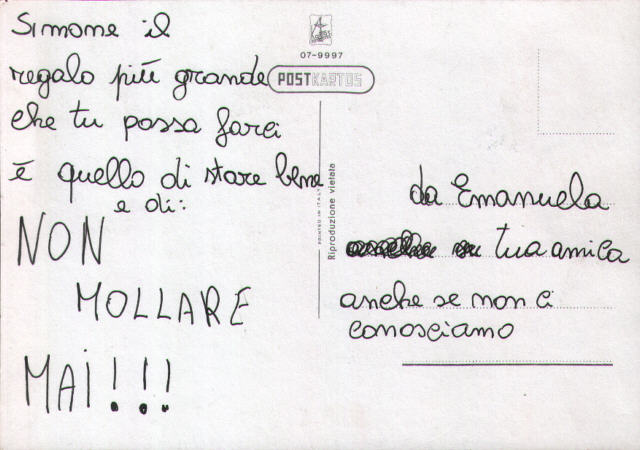 Simone il
regalo più grande
che tu possa farci
è quello di stare bene
e di:
NON
MOLLARE
MAI!!!
07-9997
POSTKARTOS
PRINTED IN ITALY
Riproduzione vietata
da Emanuela
tua amica
anche se non ci
conosciamo